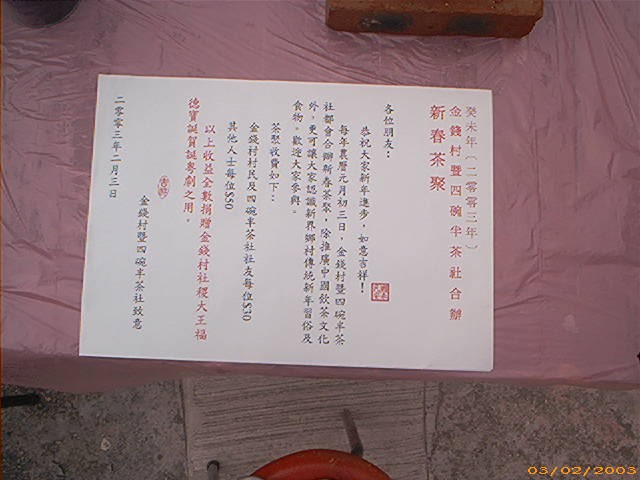 癸未年〔二零零三年〕
金錢村暨四碗半茶社合辦
新春茶聚
各位朋友：
恭祝大家新年進步，如意吉祥！
每年農曆元月初三日，金錢村暨四碗半茶
社都會合辦新春茶聚，除推廣中國飲茶文化
外，更可讓大家認識新界鄉村傳統新年習俗及
食物。歡迎大家參與。
茶聚收費如下：
金錢村村民及四碗半茶社社友每位$30
其他人士每位$50
以上收益全數捐贈金錢村社稷大王福
德寶誕賀誕粵劇之用。
金錢村暨四碗半茶社致意
二零零三年二月三日
03/02/2003